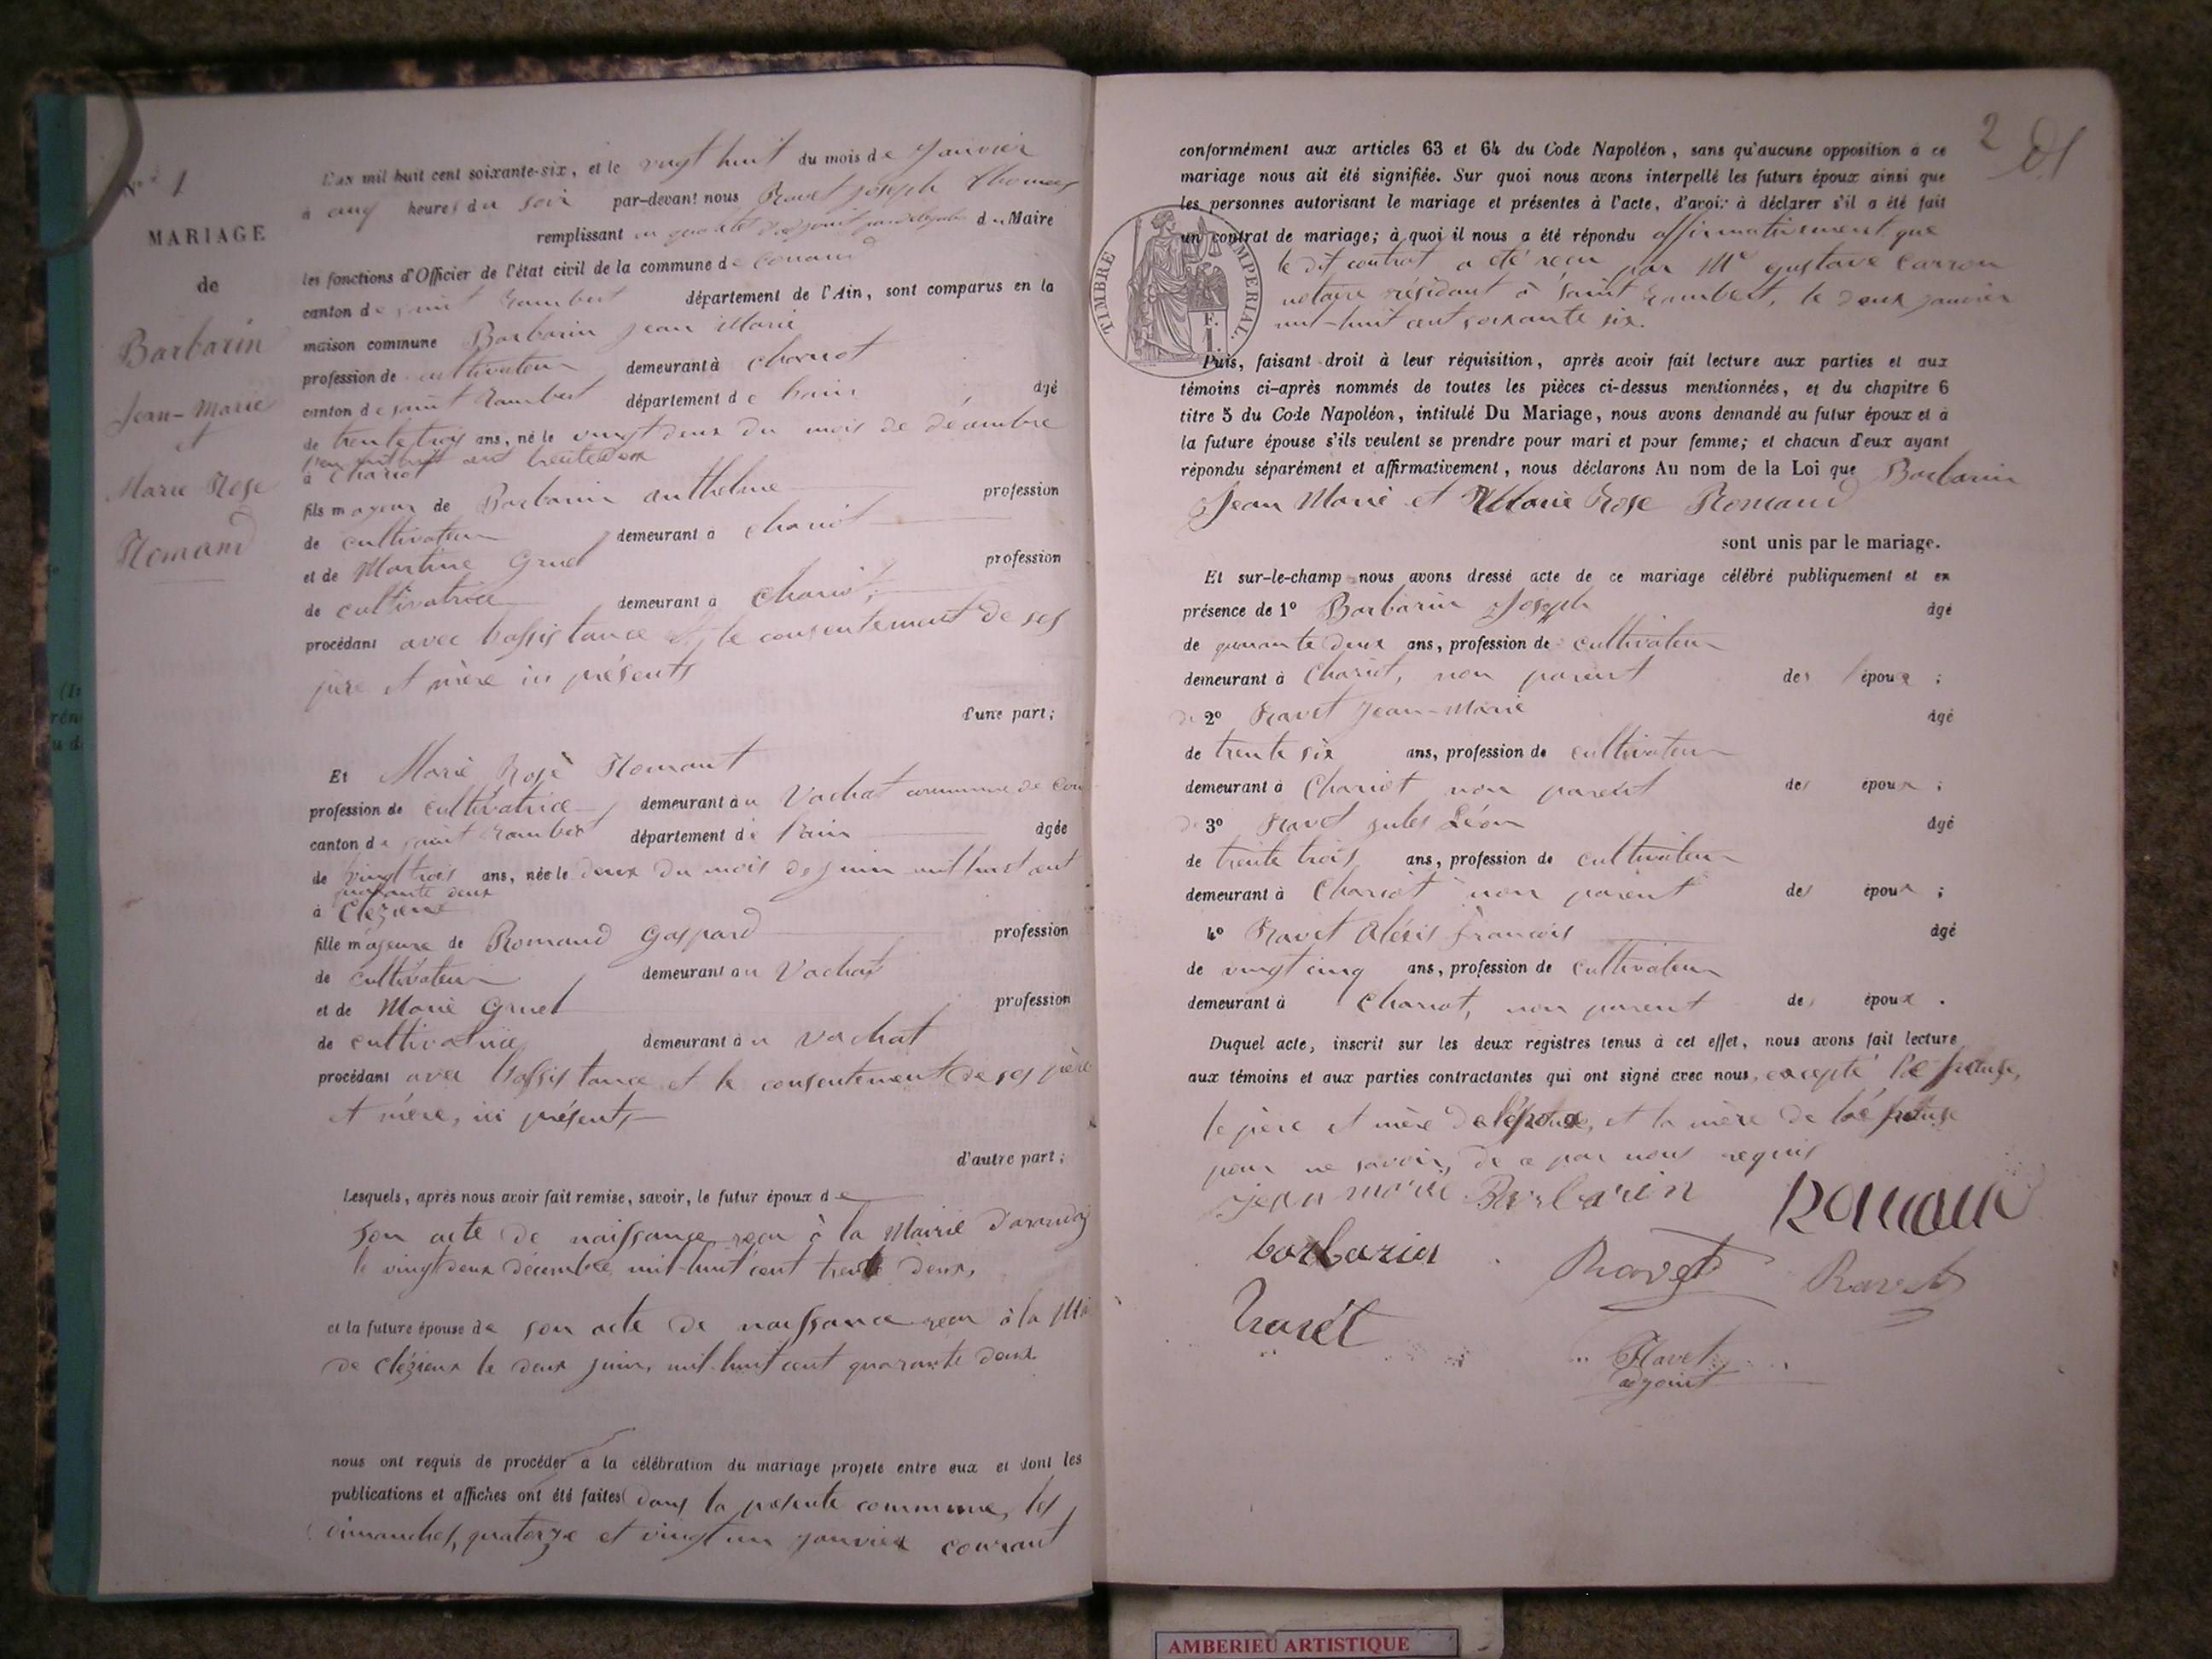 N° 1
MARIAGE
de
Barbarin
Jean-Marie
et
Marie Rose
Romand
L'an mil huit cent soixante-six, et le vingt huit du mois de Janvier
à cinq heures du soir par-devant nous Ravet Joseph Thomas
remplissant en qualité d'adjoint par délégation du Maire
les fonctions d'Officier de l'état civil de la commune de Conand
canton de saint Rambert département de l'Ain, sont comparus en la
maison commune Barbarin Jean Marie
profession de cultivateur demeurant à Chariot
canton de saint Rambert département de l'ain âgé
de trente trois ans, né le vingt deux du mois de décembre
l'an mil huit cent trente deux
à Chariot
fils majeur de Barbarin Anthelme profession
de cultivateur demeurant à Chariot
et de Martine Gruel profession
de cultivatrice demeurant à Chariot,
procédant avec l'assistance et le consentement de ses
père et mère ici présents
d'une part;
Et Marie Rose Romant
profession de cultivatrice demeurant au Vachat commune de Con
canton de saint Rambert département de l'ain âgée
de vingt trois ans, née le deux du mois de juin mil huit cent
quarante deux
à Clézieux
fille majeure de Romand Gaspard profession
de cultivateur demeurant au Vachat
et de Marie Gruel profession
de cultivatrice demeurant au Vachat
procédant avec l'assistance et le consentement de ses père
et mère, ici présents
d'autre part;
Lesquels, après nous avoir fait remise, savoir, le futur époux de
son acte de naissance reçu à la Mairie d'arandas
le vingt deux décembre mil-huit cent trente deux,
et la future épouse de son acte de naissance reçu à la Mai
de Clézieux le deux juin, mil-huit cent quarante deux
nous ont requis de procéder à la célébration du mariage projeté entre eux et dont les
publications et affiches ont été faites dans la présente commune, les
dimanches, quatorze et vingt un janvier courant
2
conformément aux articles 63 et 64 du Code Napoléon, sans qu'aucune opposition à ce
mariage nous ait été signifiée. Sur quoi nous avons interpellé les futurs époux ainsi que
les personnes autorisant le mariage et présentes à l'acte, d'avoir à déclarer s'il a été fait
un contrat de mariage; à quoi il nous a été répondu affirmativement que
le dit contrat a été reçu par Me Gustave Carron
notaire résidant à Saint Rambert, le deux janvier
mil-huit cent soixante six.
TIMBRE IMPERIAL
1 F.
Puis, faisant droit à leur réquisition, après avoir fait lecture aux parties et aux
témoins ci-après nommés de toutes les pièces ci-dessus mentionnées, et du chapitre 6
titre 5 du Code Napoléon, intitulé Du Mariage, nous avons demandé au futur époux et à
la future épouse s'ils veulent se prendre pour mari et pour femme; et chacun d'eux ayant
répondu séparément et affirmativement, nous déclarons Au nom de la Loi que Barbarin
Jean Marie et Marie Rose Romand
sont unis par le mariage.
Et sur-le-champ nous avons dressé acte de ce mariage célébré publiquement et en
présence de 1° Barbarin Joseph âgé
de quarante deux ans, profession de cultivateur
demeurant à Chariot, non parent des époux ;
de 2° Ravet Jean-Marie âgé
de trente six ans, profession de cultivateur
demeurant à Chariot non parent des époux ;
de 3° Ravet Jules Léon âgé
de trente trois ans, profession de cultivateur
demeurant à Chariot non parent des époux ;
4° Ravet Alexis françois âgé
de vingt cinq ans, profession de cultivateur
demeurant à Chariot, non parent des époux .
Duquel acte, inscrit sur les deux registres tenus à cet effet, nous avons fait lecture
aux témoins et aux parties contractantes qui ont signé avec nous, excepté l'épouse,
le père et mère de l'époux, et la mère de l'épouse
pour ne savoir, de ce par nous requis
jean marie Barbarin Romand
barbarin Ravet Ravet
Ravet
Ravet
adjoint
AMBERIEU ARTISTIQUE